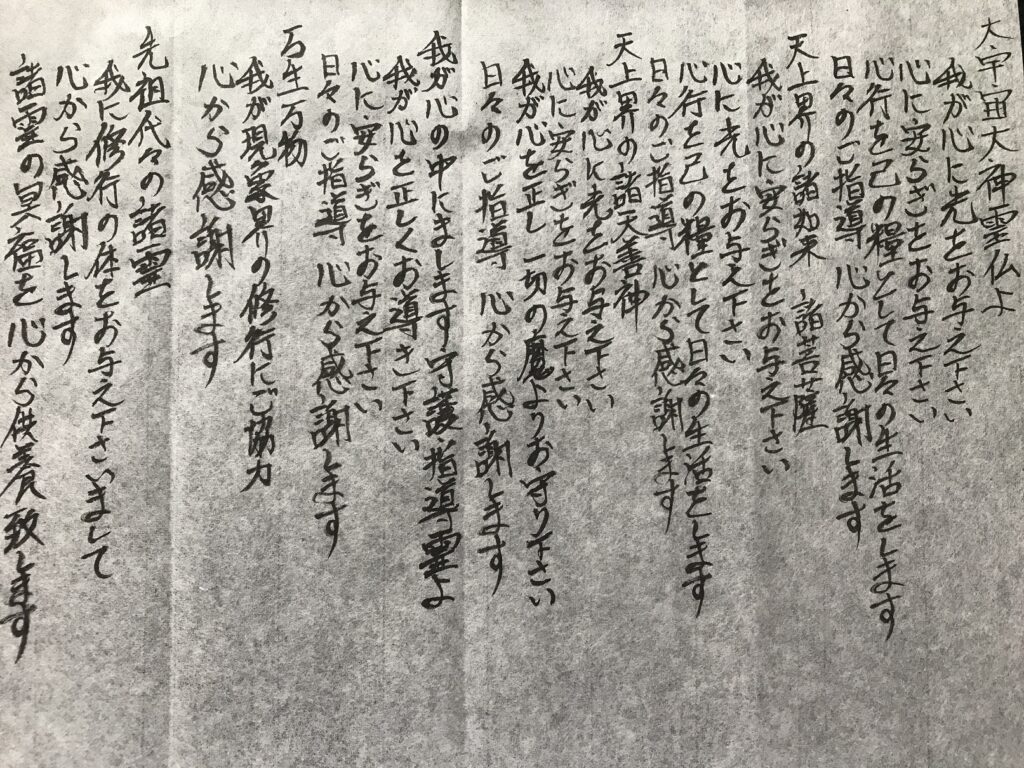 大宇宙大神霊仏よ
我が心に光をお与え下さい
心に安らぎをお与え下さい
心行を己の糧として日々の生活をします
日々のご指導 心から感謝します
天上界の諸如来 諸菩薩
我が心に安らぎをお与え下さい
心に光をお与え下さい
心行を己の糧として日々の生活をします
日々のご指導 心から感謝します
天上界の諸天善神
我が心に光をお与え下さい
心に安らぎをお与え下さい
我が心を正し 一切の魔よりお守り下さい
日々のご指導 心から感謝します
我が心の中にまします守護・指導霊よ
我が心を正しくお導き下さい
心に安らぎをお与え下さい
日々のご指導 心から感謝します
万生万物
我が現象界の修行にご協力
心から感謝します
先祖代々の諸霊
我に修行の体をお与え下さいまして
心から感謝します
諸霊の冥福を心から供養致します